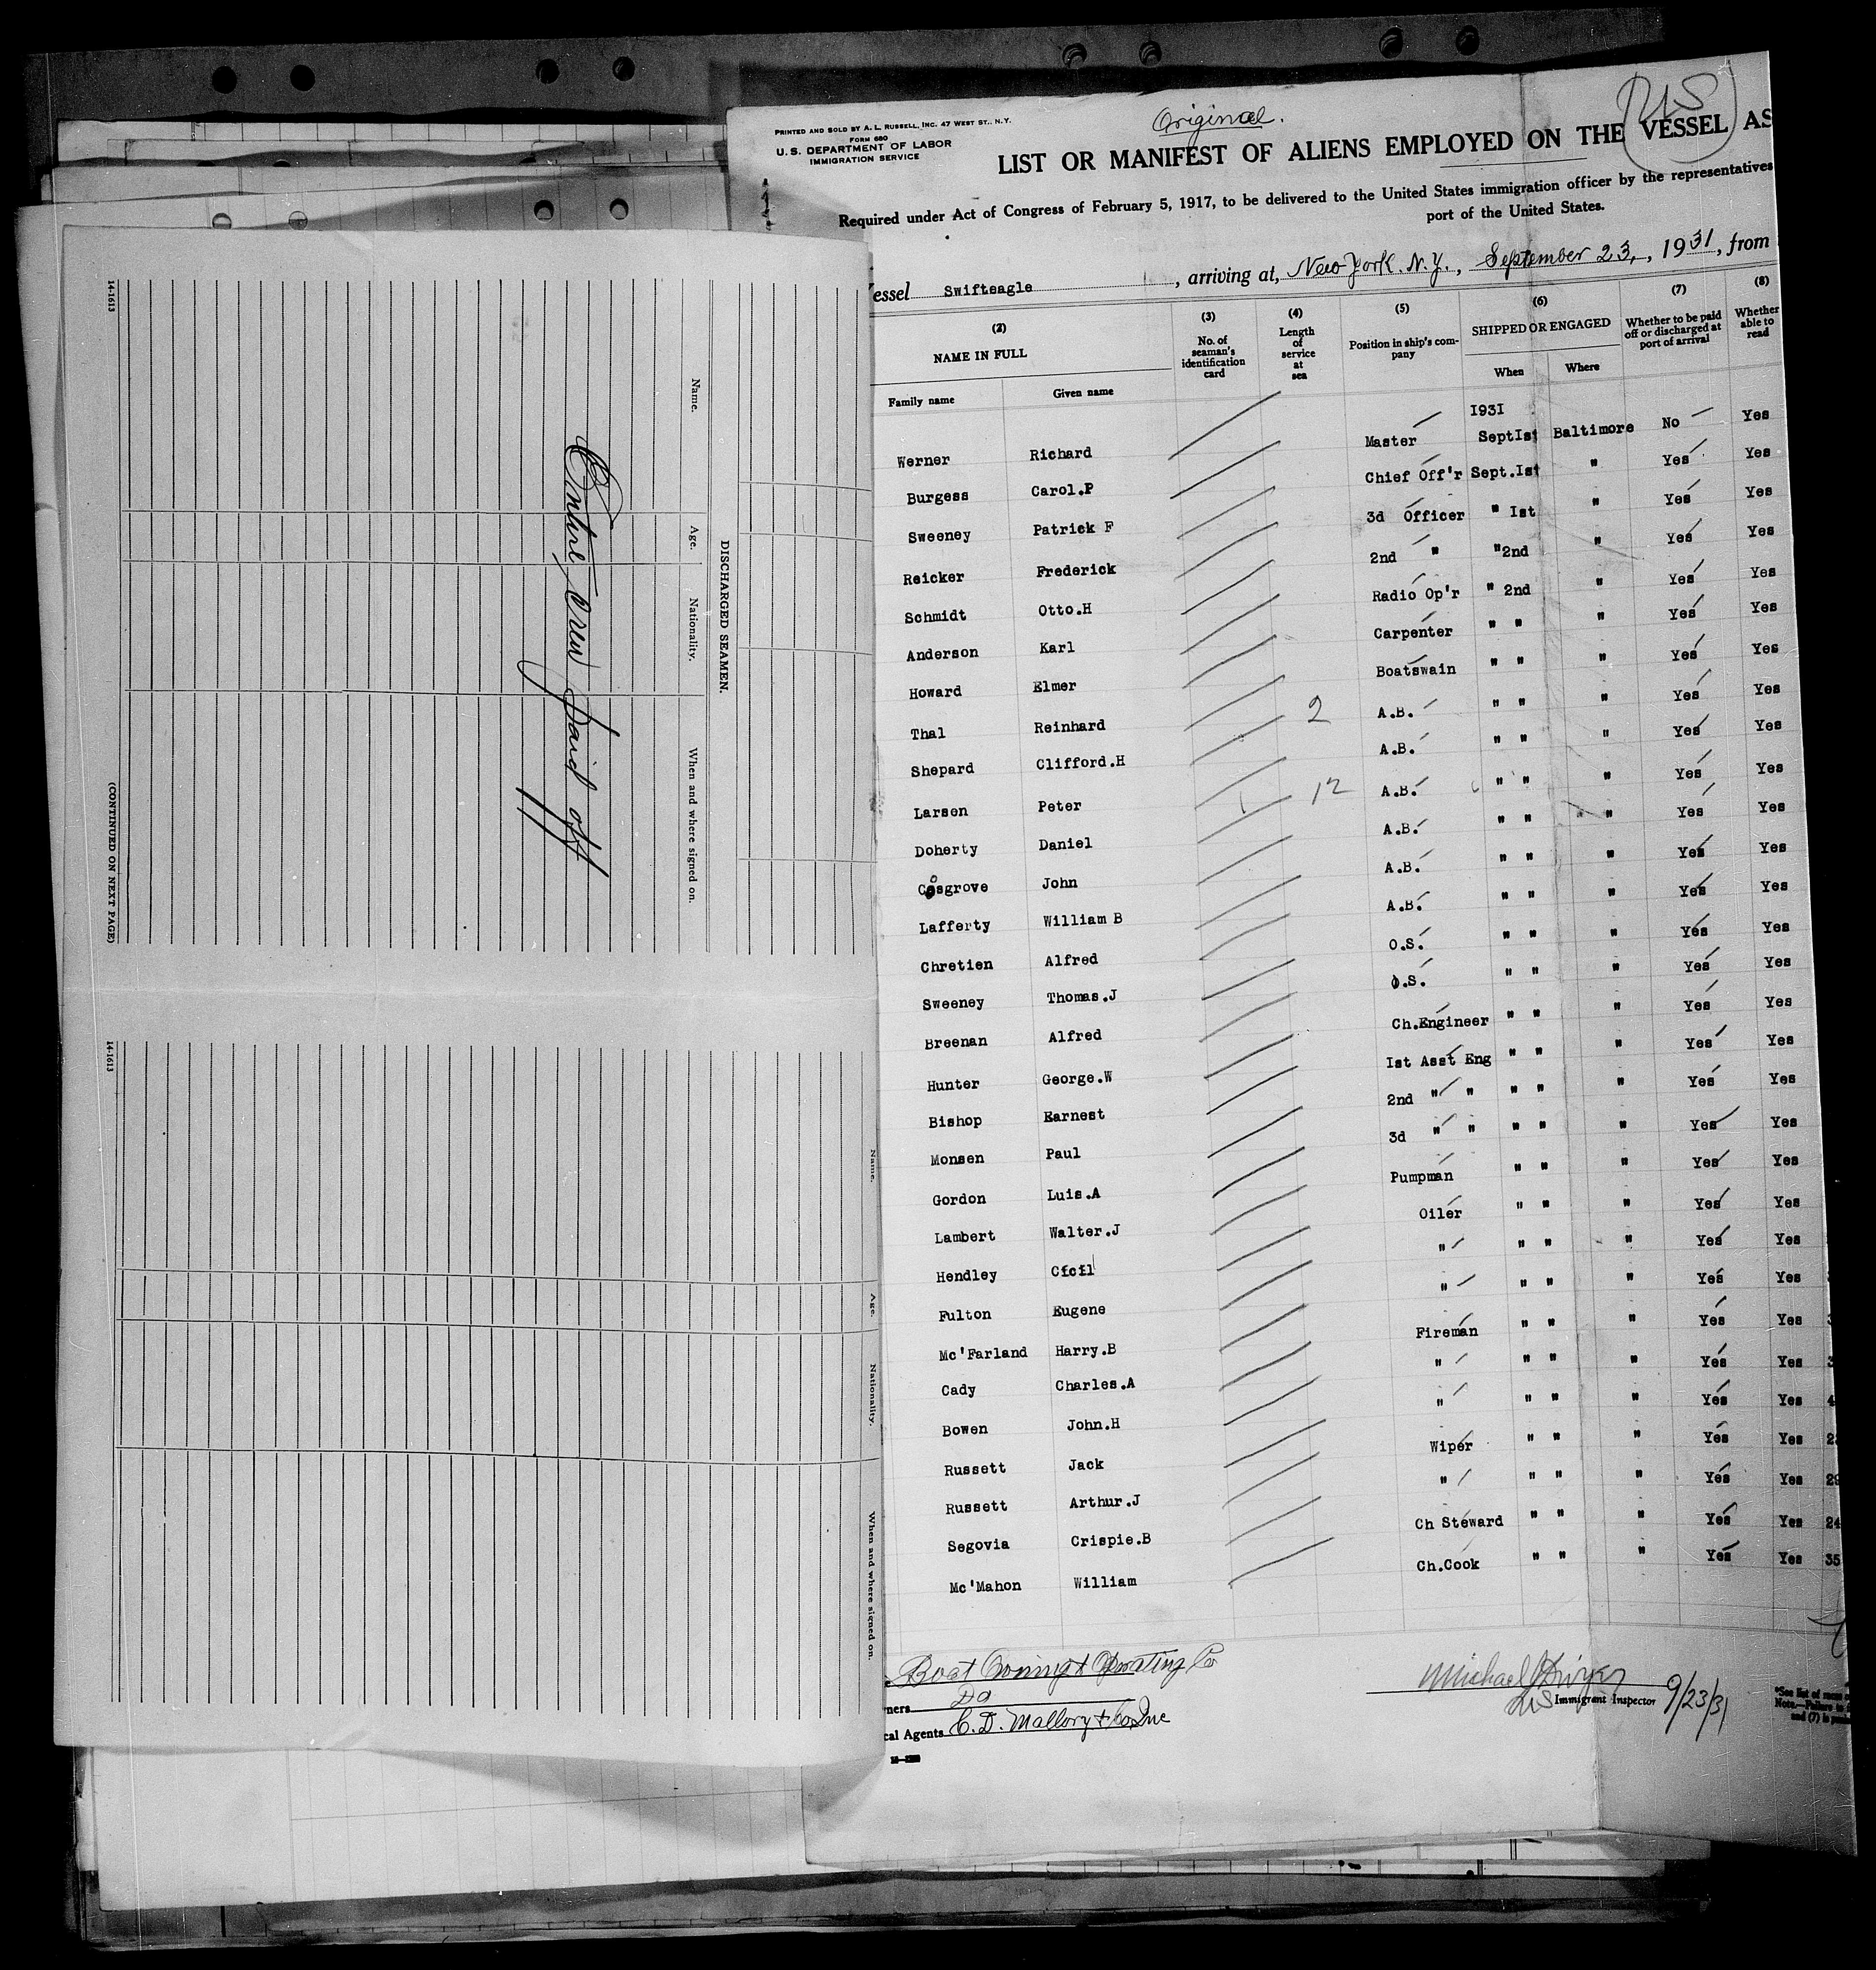 14-1613
DISCHARGED SEAMEN.
Name. Age. Nationality. When and where signed on.
Entire Crew paid off
(CONTINUED ON NEXT PAGE)
14-1613
Name. Age. Nationality. When and where signed on.
Original.
PRINTED AND SOLD BY A. L. RUSSELL, INC. 47 WEST ST., N.Y.
FORM 680
U.S. DEPARTMENT OF LABOR
IMMIGRATION SERVICE
LIST OR MANIFEST OF ALIENS EMPLOYED ON THE VESSEL AS
Required under Act of Congress of February 5, 1917, to be delivered to the United States immigration officer by the representatives
port of the United States.
essel Swifteagle, arriving at, New York. N.Y., September 23, 1931, from
(2) (3) (4) (5) (6) (7) (8)
NAME IN FULL No. of seaman's identification card Length of service at sea Position in ship's company SHIPPED OR ENGAGED Whether to be paid off or discharged at port of arrival Whether able to read
Family name Given name When Where
1931
Werner Richard Master SeptIst Baltimore No Yes
Burgess Carol.P Chief Off'r Sept.Ist " Yes Yes
Sweeney Patrick F 3d Officer " Ist " Yes Yes
Reicker Frederick 2nd " "2nd " Yes Yes
Schmidt Otto.H Radio Op'r " 2nd " Yes Yes
Anderson Karl Carpenter " " " Yes Yes
Howard Elmer Boatswain " " " Yes Yes
Thal Reinhard 2 A.B. " " " Yes Yes
Shepard Clifford.H A.B. " " " Yes Yes
Larsen Peter 12 A.B. " " " Yes Yes
Doherty Daniel A.B. " " " Yes Yes
Cosgrove John A.B. " " " Yes Yes
Lafferty William B A.B. " " " Yes Yes
Chretien Alfred O.S. " " " Yes Yes
Sweeney Thomas.J O.S. " " " Yes Yes
Breenan Alfred Ch.Engineer " " " Yes Yes
Hunter George.W Ist Asst Eng " " " Yes Yes
Bishop Earnest 2nd " " " " " Yes Yes
Monsen Paul 3d " " " " " Yes Yes
Gordon Luis.A Pumpman " " " Yes Yes
Lambert Walter.J Oiler " " " Yes Yes
Hendley Cicil " " " " Yes Yes
Fulton Eugene " " " " Yes Yes
Mc'Farland Harry.B Fireman " " " Yes Yes
Cady Charles.A " " " " Yes Yes
Bowen John.H " " " " Yes Yes
Russett Jack Wiper " " " Yes Yes
Russett Arthur.J " " " " Yes Yes 29
Segovia Crispie.B Ch Steward " " " Yes Yes 24
Mc'Mahon William Ch.Cook " " " Yes Yes 35
Boat Owning & Operating Co
ners Do
cal Agents C. D. Mallory & Co Inc
Michael J Dwyer
Immigrant Inspector 9/23/31
*See list of races
Note.—Failure to
and (7) is